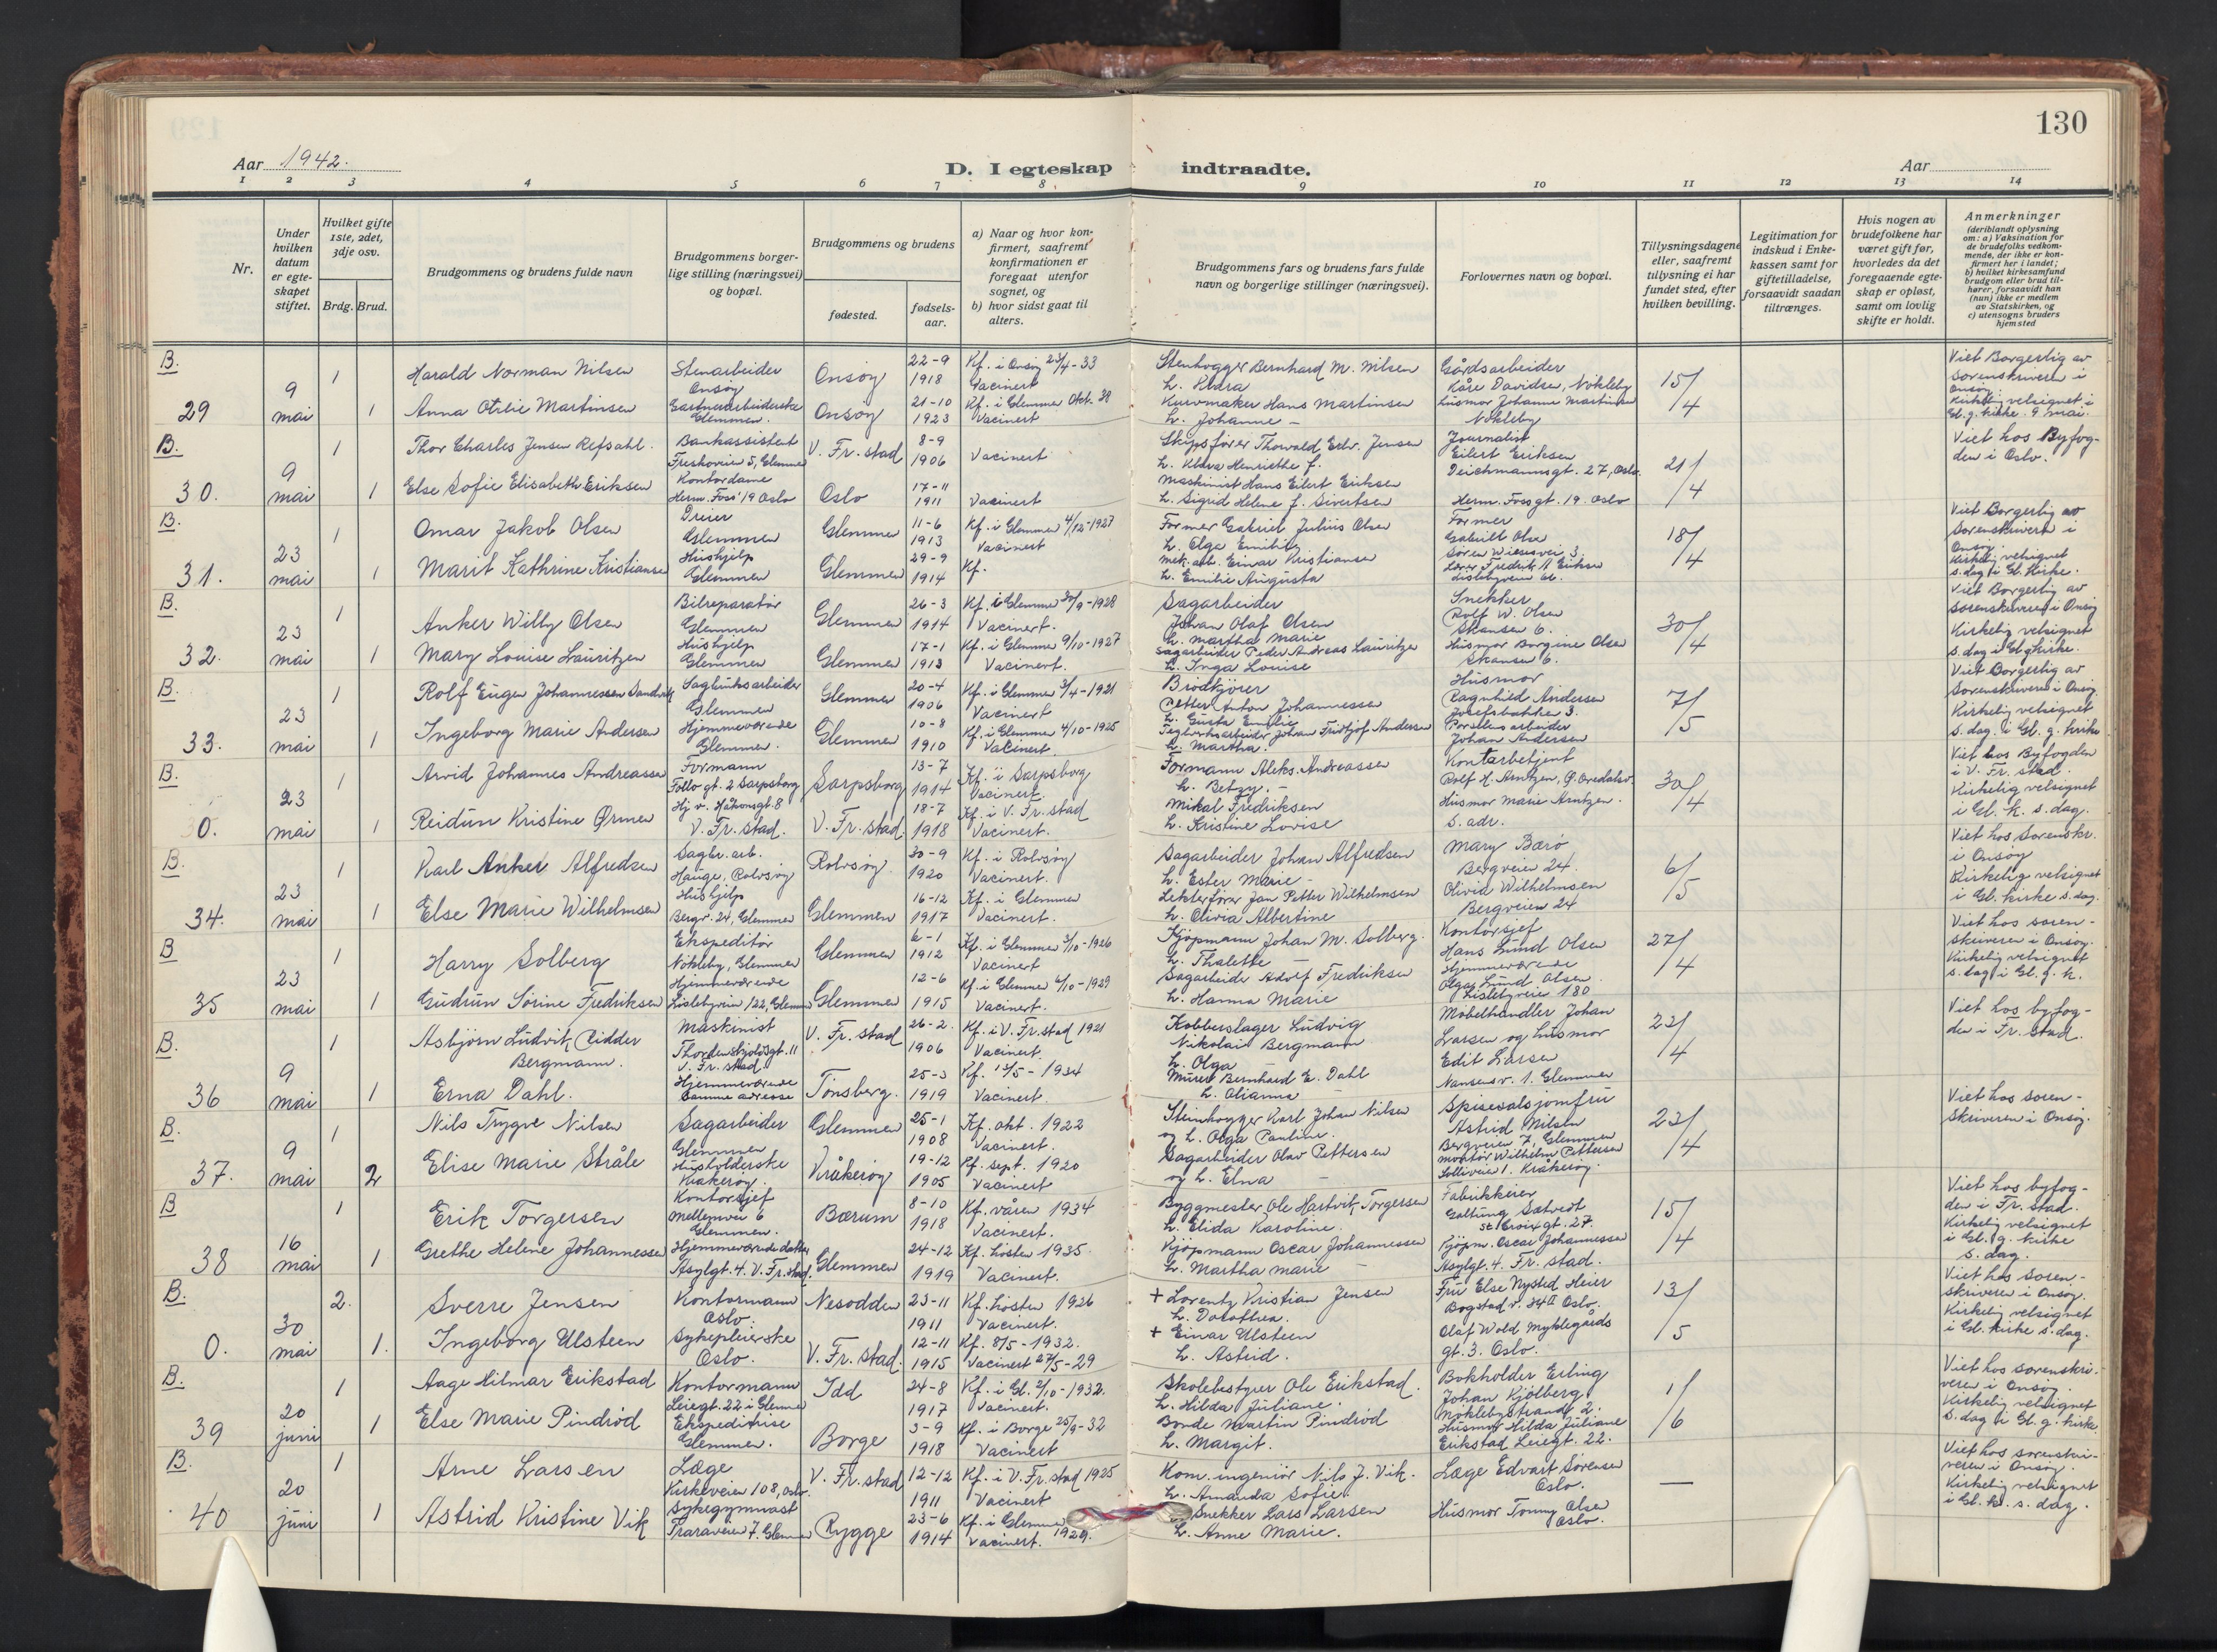 130
Aar 1942.
D. I egteskap indtraadte.
Aar
1 2 3 4 5 6 7 8 9 10 11 12 13 14
Nr.
Under hvilken datum er egteskapet stiftet.
Hvilket gifte 1ste, 2det, 3dje osv.
Brdg. Brud.
Brudgommens og brudens fulde navn
Brudgommens borgerlige stilling (næringsvei) og bopæl.
Brudgommens og brudens
fødested.
fødselsaar.
a) Naar og hvor konfirmert, saafremt konfirmationen er foregaat utenfor sognet, og
b) hvor sidst gaat til alters.
Brudgommens fars og brudens fars fulde navn og borgerlige stillinger (næringsvei).
Forlovernes navn og bopæl.
Tillysningsdagene eller, saafremt tillysning ei har fundet sted, efter hvilken bevilling.
Legitimation for indskud i Enkekassen samt for giftetilladelse, forsaavidt saadan tiltrænges.
Hvis nogen av brudefolkene har været gift før, hvorledes da det foregaaende egteskap er opløst, samt om lovlig skifte er holdt.
Anmerkninger
(deriblandt oplysning om: a) Vaksination for de brudefolks vedkommende, der ikke er konfirmert her i landet; b) hvilket kirkesamfund brudgom eller brud tilhører, forsaavidt han (hun) ikke er medlem av Statskirken, og c) utensogns bruders hjemsted
B. 29
9 mai
1 Harald Norman Nilsen Stenarbeider Onsøy Onsøy 22-9 1918 Kf. i Onsøy 23/4-33 Vacinert
1 Anna Otilie Martinsen Gartnerarbeiderske Glemmen. Onsøy 21-10 1923 Kf. i Glemmen Okt. 38 Vacinert
Stenhogger Bernhard M. Nilsen
Kurvmaker Hans Martinsen h. Johanne -
Gårdsarbeider Kåre Davidsen, Nökleby
Husmor Johanne Martinsen Nökleby
15/4
Viet Borgerlig av sorenskriveren i Onsøy. Kirkelig velsignet i Gl. g. kirke. 9 mai.
B. 30.
9 mai
1 Thor Charles Jensen Refsahl. Bankassistent Freskoveien 5, Glemmen V. Fr. stad 8-9 1906 Vacinert
1 Else Sofie Elisabeth Eriksen Kontordame Herm. Foss' 19 Oslo Oslo 17-11 1911 Vacinert
Skipsfører Thorvald Edv. Jensen h. Klara Henriette f.
Maskinist Hans Eilert Eriksen h. Sigrid Helene f. Sivertsen
Journalist Eilert Eriksen Deichmannsgt. 27, Oslo.
Herm. Foss gt. 19. Oslo
21/4
Viet hos Byfogden i Oslo.
B. 31.
23 mai
1 Omar Jakob Olsen Dreier Glemmen Glemmen 11-6 1913 Kf. i Glemmen 4/12-1927 Vacinert
1 Marit Kathrine Kristiansen Hushjelp Glemmen Glemmen 29-9 1914 Kf.
Former Gabriel Julius Olsen
Mek. arb. Einar Kristiansen h. Emilie Augusta
Former Gabriel Olsen Søren Wiesesvei 3.
Lærer Fredrik A Eriksen Lislebyveien 61.
18/4
Viet Borgerlig av Sorenskriveren i Onsøy. Kirkelig velsignet s. dag i Gl. Kirke.
B. 32.
23 mai
1 Anker Willy Olsen Bilreparatør Glemmen Glemmen 26-3 1914 Kf. i Glemmen 30/9-1928 Vacinert.
1 Mary Louise Lauritzen Hushjelp Glemmen Glemmen 17-1 1913 Kf. i Glemmen 9/10-1927 Vacinert.
Sagarbeider Johan Olaf Olsen h. Martha Marie
Sagarbeider Peder Andreas Lauritzen h. Inga Louise
Snekker Rolf W. Olsen Skansen 6.
Husmor Borgine Olsen Skansen 6.
30/4
Viet Borgerlig av sorenskriveren i Onsøy Kirkelig velsignet s. dag i Gl g kirke.
B. 33.
23 mai
1 Rolf Eugen Johannessen Sandvik Sagbruksarbeider Glemmen Glemmen 20-4 1906 Kf. i Glemmen 3/4-1921 Vacinert
1 Ingeborg Marie Andersen Hjemmeværende Glemmen. Glemmen 10-8 1910 Kf. i Glemmen 4/10-1925 Vacinert.
Brödkjörer Petter Anton Johannessen h. Gusta Emilie
Teglverksarbeider Johan Fridtjof Andersen h. Martha.
Husmor Ragnhild Andersen Josefsbakken 3.
Porselensarbeider Johan Andersen
7/5
Viet Borgerlig av Sorenskriveren i Onsøy. Kirkelig velsignet s. dag. i Gl. g. kirke
B. 0.
23 mai
1 Arvid Johannes Andreassen Formann Follo gt. 2 Sarpsborg Sarpsborg 13-7 1914 Kf. i Sarpsborg Vacinert.
1 Reidun Kristine Ørmen Hj. v. Håkonsgt. 8 V. Fr. stad. V. Fr. stad. 18-7 1918 Kf. i V. Fr. stad Vacinert.
Formann Aleks. Andreassen h. Betzy. -
Mikal Fredriksen h. Kristine Lovise
Kontorbetjent Rolf H. Arntzen,
Husmor Marie Arntzen. s. adr.
30/4
Viet hos Byfogden i V. Fr. stad. Kirkelig velsignet i Gl. k. s. dag.
B. 34.
23 mai
1 Karl Anker Alfredsen Sagbr. arb. Hauge, Rolvsøy Rolvsøy 30-9 1920 Kf. i Rolvsøy Vacinert.
1 Else Marie Wilhelmsen Hushjelp Bergv. 24, Glemmen Glemmen 16-12 1917 Kf. i Glemmen Vacinert.
Sagarbeider Johan Alfredsen h. Ester Marie -
Lekterfører Jan Petter Wilhelmsen h. Olivia Albertine
Mary Barø Bergveien 24.
Olivia Wilhelmsen Bergveien 24
6/5
Viet hos Sorenskr. i Onsøy Kirkelig velsignet i Gl. kirke s. dag.
B 35
23 mai
1 Harry Solberg Ekspeditør Nökleby, Glemmen Glemmen 6-1 1912 Kf. i Glemmen 3/10-1926 Vacinert
1 Gudrun Sørine Fredriksen Hjemmeværende Lislebyveien 122, Glemmen Glemmen 12-6 1915 Kf. i Glemmen 6/10-1929 Vacinert.
Kjøpmann Johan M. Solberg. h. Thalette -
Sagarbeider Adolf Fredriksen h. Hanna Marie
Kontorsjef Hans Lund Olsen
Hjemmeværende Olga Lund Olsen Lislebyveien 180
27/4
Viet hos sorenskriveren i Onsøy. Kirkelig velsignet s. dag i Gl. g. k.
B. 36
9 mai
1 Asbjørn Ludvik Ridder Bergmann. Maskinist Thordenskjoldsgt. 11 V. Fr. stad V. Fr. stad 26-2. 1906 Kf. i V. Fr. stad 1921 Vacinert.
1 Erna Dahl. Hjemmeværende Samme adresse Tønsberg. 25-3 1919 Kf. 13/5-1934 Vacinert.
Kobberslager Ludvig Nikolai Bergmann h. Olga
Murer Bernhard E. Dahl h. Olianna
Møbelhandler Johan Larsen og husmor Edit Larsen Nansens v. 1. Glemmen
22/4
Viet hos byfogden i Fr. stad.
B. 37.
9 mai
1 Nils Trygve Nilsen Sagarbeider Glemmen Glemmen 25-1 1908 Kf. okt. 1922 Vacinert.
2 Elise Marie Stråle Husholderske Kråkerøy. Kråkerøy 19-12 1905 Kf. sept. 1920 Vacinert
Steinhogger Karl Johan Nilsen og h. Olga Pauline.
Sagarbeider Olav Pettersen og h. Elna -
Spisesalsjomfru Astrid Nilsen Bergveien 7, Glemmen
Montør Wilhelm Pettersen Lolliveien 1. Kråkerøy.
22/4
Viet hos sorenskriveren i Onsøy.
B 38
16 mai
1 Erik Torgersen Kontorsjef Mellemvei 6 Glemmen. Bærum 8-10 1918 Kf. våren 1934 Vacinert.
1 Grethe Helene Johannessen Hjemmeværende datter Asylgt. 4. V. Fr. stad. Glemmen 24-12 1919 Kf. høsten 1935. Vacinert.
Byggmester Ole Hartvik Torgersen h. Elida Karoline.
Kjøpmann Oscar Johannessen h. Martha Marie -
Fabrikkeier Galtung Sætvedt St. Croixgt. 27.
Kjøpm. Oscar Johannessen Asylgt. 4. Fr. stad.
15/4
Viet hos byfogden i Fr. stad. Kirkelig velsignet i Gl. g. kirke s. dag.
B. 0.
30 mai
2. Sverre Jensen Kontormann Oslo. Nesodden 23-11 1911 Kf. høsten 1926 Vacinert.
1. Ingeborg Ulsteen Sykepleierske Oslo. V. Fr. stad. 12-11 1915 Kf. 8/5-1932. Vacinert 27/5-29
+ Lorentz Kristian Jensen h. Dorothea.
+ Einar Ulsteen h. Astrid.
Fru Else Nysted Heier Bogstad v. 34 II Oslo.
Olaf Wold Myklegårds gt. 3. Oslo.
13/5
Viet hos sorenskriveren i Onsøy. Kirkelig velsignet i Gl. kirke s. dag.
B. 39
20 juni
1 Aage Hilmar Erikstad Kontormann Leiegt. 22 i Glemmen Idd 24-8 1917 Kf. i Gl. 2/10-1932. Vacinert.
1 Else Marie Pindröd Ekspeditrise Glemmen. Borge 3-9 1918 Kf. i Borge 25/9-32 Vacinert
Skolebestyrer Ole Erikstad. h. Hilda Juliane.
Bonde Martin Pindröd h. Margit.
Bokholder Erling Johan Kjölberg. Nöklebystrand 2.
Husmor Hilda Juliane Erikstad Leiegt. 22.
1/6
Viet hos sorenskriveren i Onsøy Kirkelig velsignet s. dag i Gl. g. kirke.
B. 40
20 juni
1 Arne Larsen Læge Kirkeveien 108, Oslo. V. Fr. stad 12-12 1911 Kf. i V. Fr. stad 1925 Vacinert
1 Astrid Kristine Vik Sykegymnast Traraveien 7. Glemmen Rygge 23-6 1914 Kf. i Glemmen 1929. Vacinert.
Kom. ingeniör Nils J. Vik. h. Amanda Sofie.
Snekker Lars Larsen h. Anne Marie.
Læge Edvart Sörensen Oslo.
Husmor Tonny Olsen Oslo.
—
Viet hos sorenskriveren i Onsøy. Kirkelig velsignet i Gl. k. s. dag.